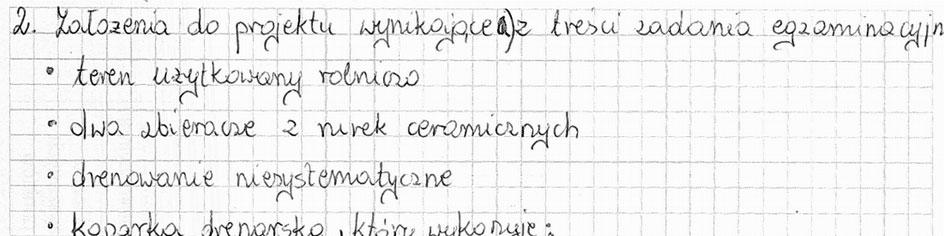 2. Założenia do projektu wynikające z treści zadania egzaminacyjn
• teren użytkowany rolniczo
• dwa zbieracze z rurek ceramicznych
• drenowanie niesystematyczne
• koparka drenarska, który wykonuje: